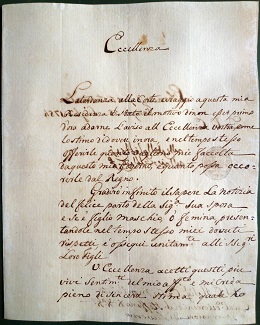 Eccellenza
La lontananza alla Corte e viaggio a questa mia
Residenza è stato il motivo di non esser primo
di a darne l'aviso all'Eccellenza vostra come
lo stimo di dovere in ora e nel tempo stesso
offerirle
a questo mio quanto possa occo-
rerle dal Regno.
Gradirò infinito il sapere la notizia
del felice parto della Sigra Sua Sposa
e se è figlio maschio o femina, presen-
tandole nel tempo stesso miei dovuti
rispetti, e ossequi unitamte alli Sigri
Loro figli
V. Eccellenza accetti questti più
vivi Sentimti del mio affto e mi creda
pieno di sincera stima quale ho